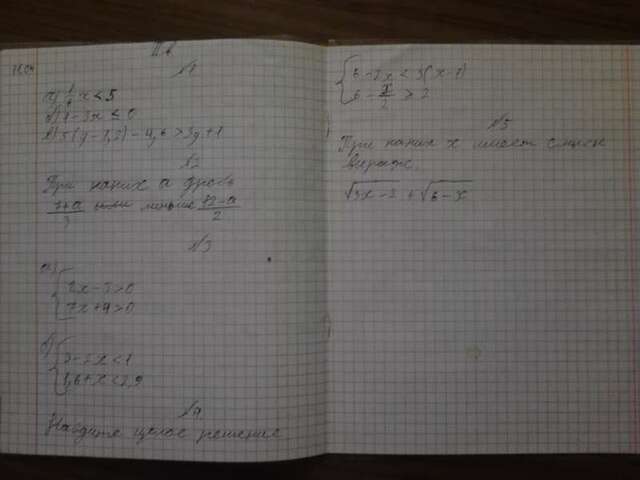 II в
№1
а) 1/6 x < 5
б) 1-3x ≤ 0
в) 5(y-1,2)-4,6 > 3y+1
№2
При каких a дробь
7+a/3 меньше 12-a/2
№3
а) { 2x-3>0
7x+4>0
б) { 3-2x<1
1,6+x<2,9
№4
Найдите целое решение
{ 6-2x < 3(x-1)
6- x/2 ≥ 2
№5
При каких x имеет смысл
выраж.
√3x-2 + √6-x